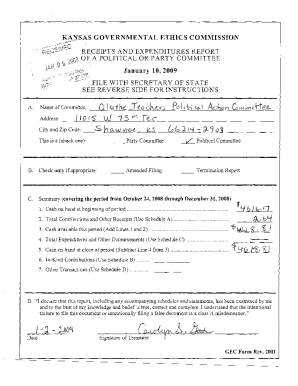 KANSAS GOVERNMENTAL ETHICS COMMISSION
RECEIVED
JAN 05 2009
RECEIPTS AND EXPENDITURES REPORT
OF A POLITICAL OR PARTY COMMITTEE
January 10, 2009
FILE WITH SECRETARY OF STATE
SEE REVERSE SIDE FOR INSTRUCTIONS
A. Name of Committee: Olathe Teachers Political Action Committee
Address: 11015 W 75th Ter
City and Zip Code: Shawnee, KS 66214-2908
This is a (check one): Party Committee ✓ Political Committee
B. Check only if appropriate: Amended Filing Termination Report
C. Summary (covering the period from October 24, 2008 through December 31, 2008)
1. Cash on hand at beginning of period $4616.17
2. Total Contributions and Other Receipts (Use Schedule A) 2.64
3. Cash available this period (Add Lines 1 and 2) $4618.81
4. Total Expenditures and Other Disbursements (Use Schedule C)
5. Cash on hand at close of period (Subtract Line 4 from 3) $4618.81
6. In-Kind Contributions (Use Schedule B)
7. Other Transactions (Use Schedule D)
D. "I declare that this report, including any accompanying schedules and statements, has been examined by me
and to the best of my knowledge and belief is true, correct and complete. I understand that the intentional
failure to file this document or intentionally filing a false document is a class A misdemeanor."
1-2-2009 Carolyn S.
Date Signature of Treasurer
GEC Form Rev, 2001